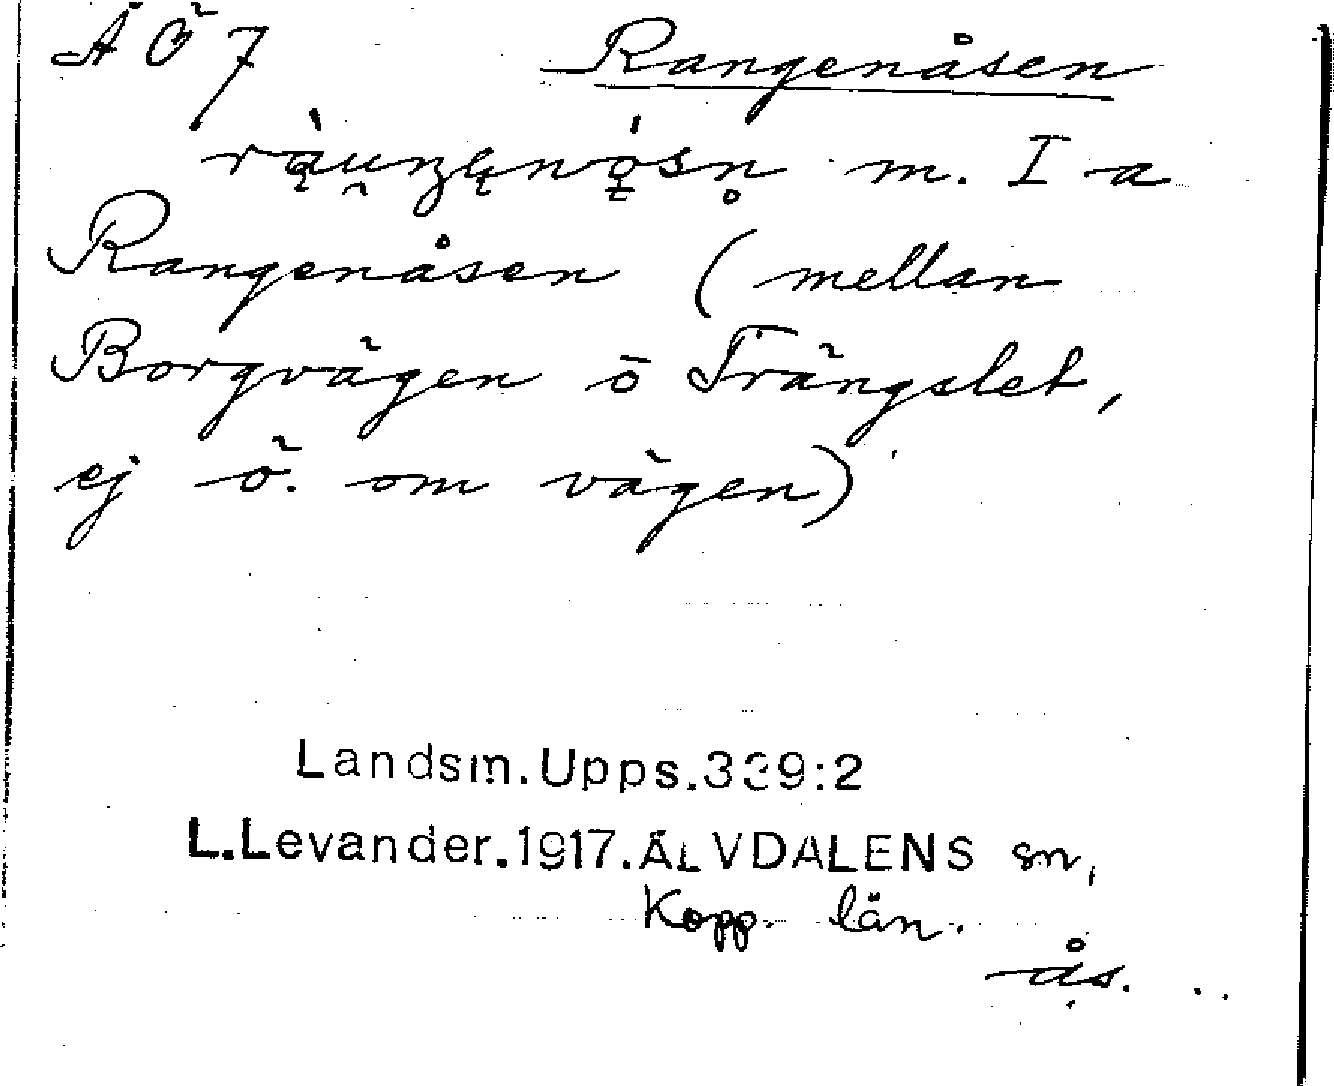 ÄÖ 7 Rangenåsen
m. I a
Rangenåsen (mellan
Borgvägen o Trängslet,
ej ö. om vägen)
Landsm.Upps.339:2
L.Levander.1917.ÄLVDALENS sn,
Kopp. län.
ås.